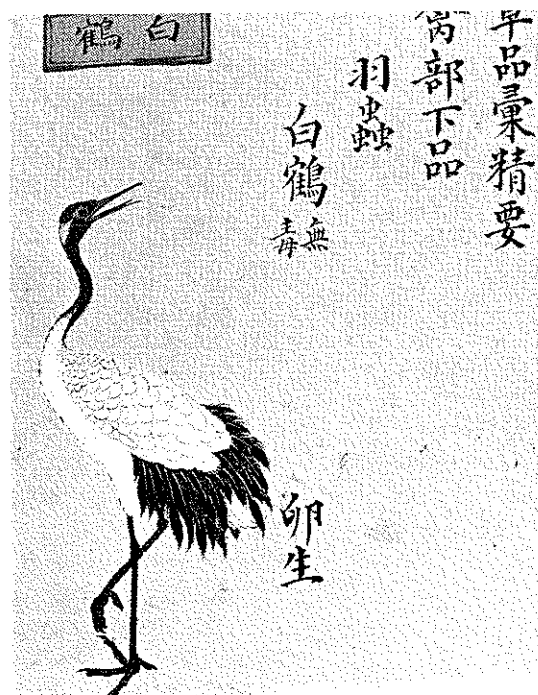 草品彙精要
禽部下品
羽蟲
白鶴 無毒
卵生
白鶴